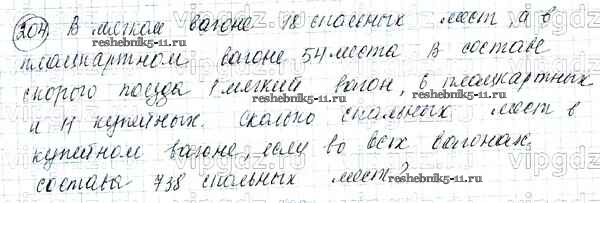 204 В мягком вагоне 18 спальных мест, а в
reshebnik5-11.ru
плацкартном вагоне 54 места В составе
reshebnik5-11.ru
скорого поезда 1 мягкий вагон, 6 плацкартных
reshebnik5-11.ru
и 11 купейных. Сколько спальных мест в
купейном вагоне, если во всех вагонах
vipgdz
состава 738 спальных мест?
reshebnik5-11.ru